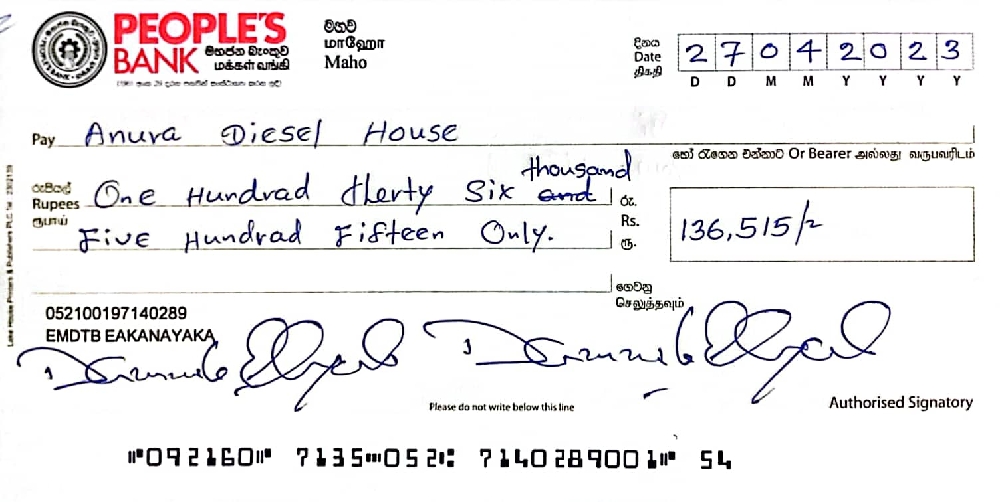 PEOPLE'S
BANK මහජන බැංකුව
மக்கள் வங்கி
මහව
மாஹோ
Maho
දිනය
Date
திகதி
2 7 0 4 2 0 2 3
D D M M Y Y Y Y
Pay Anura Diesel House
හෝ රැගෙන එන්නාට Or Bearer அல்லது வருபவரிடம்
thousand
රුපියල්
Rupees One Hundrad therty Six and
ரூபாய் Five Hundrad Fifteen Only.
රු.
Rs. 136,515/-
ரூ.
ගෙවනු
செலுத்தவும்
052100197140289
EMDTB EAKANAYAKA
Please do not write below this line
Authorised Signatory
⑈092160⑈ 7135⑉052⑆ 7140289001⑈ 54